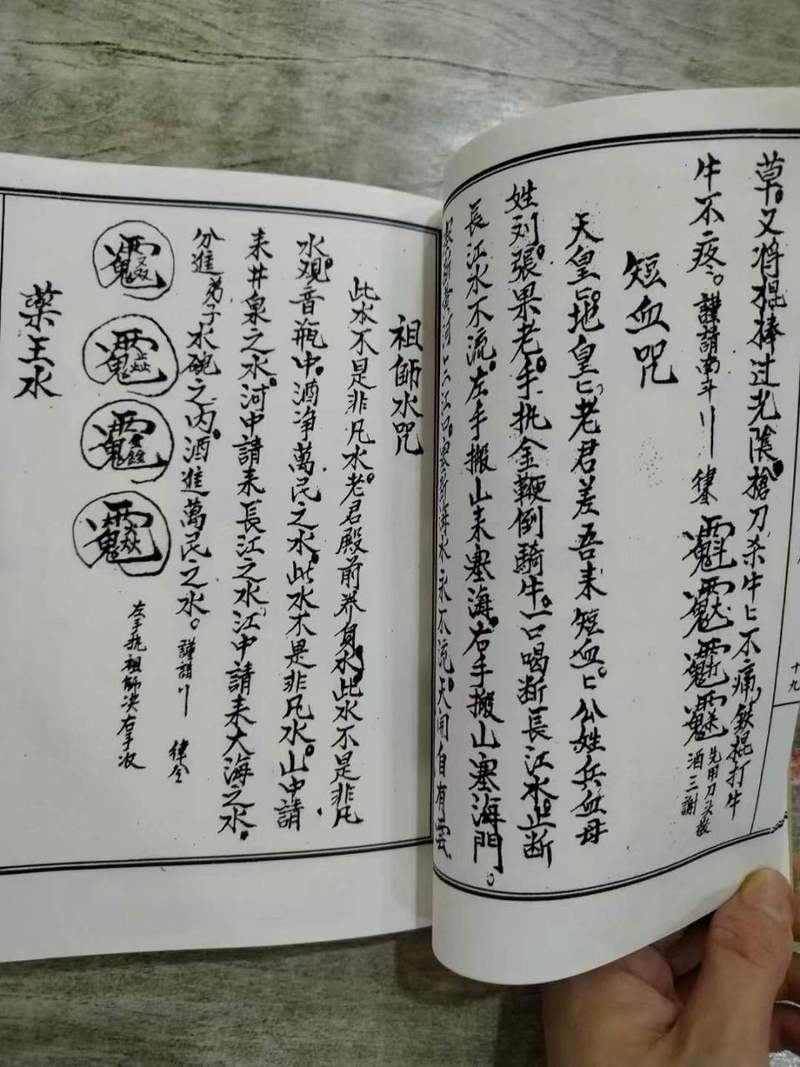 草。又将棍捧过光陰。槍刀杀牛匕不痛。鉄棍打牛
牛不疼。謹請南斗刂律令
先用刀头敬
酒三謝
短血咒
天皇匕。地皇匕。老君差吾来短血。匕公姓兵血母
姓刘。張果老。手执金鞭倒騎牛。一口喝断長江水。止断
長江水不流。左手搬山来塞海。右手搬山塞海門。
海水永不流。天開自有雲
十九
祖師水咒
此水不是非凡水。老君殿前养身水。此水不是非凡
水。观音瓶中。酒净萬民之水。此水不是非凡水。山中請
来井泉之水。河中請来長江之水。江中請来大海之水。
分進弟子水碗之内。酒進萬民之水。謹請刂律令
左手执祖師决右手
藥王水